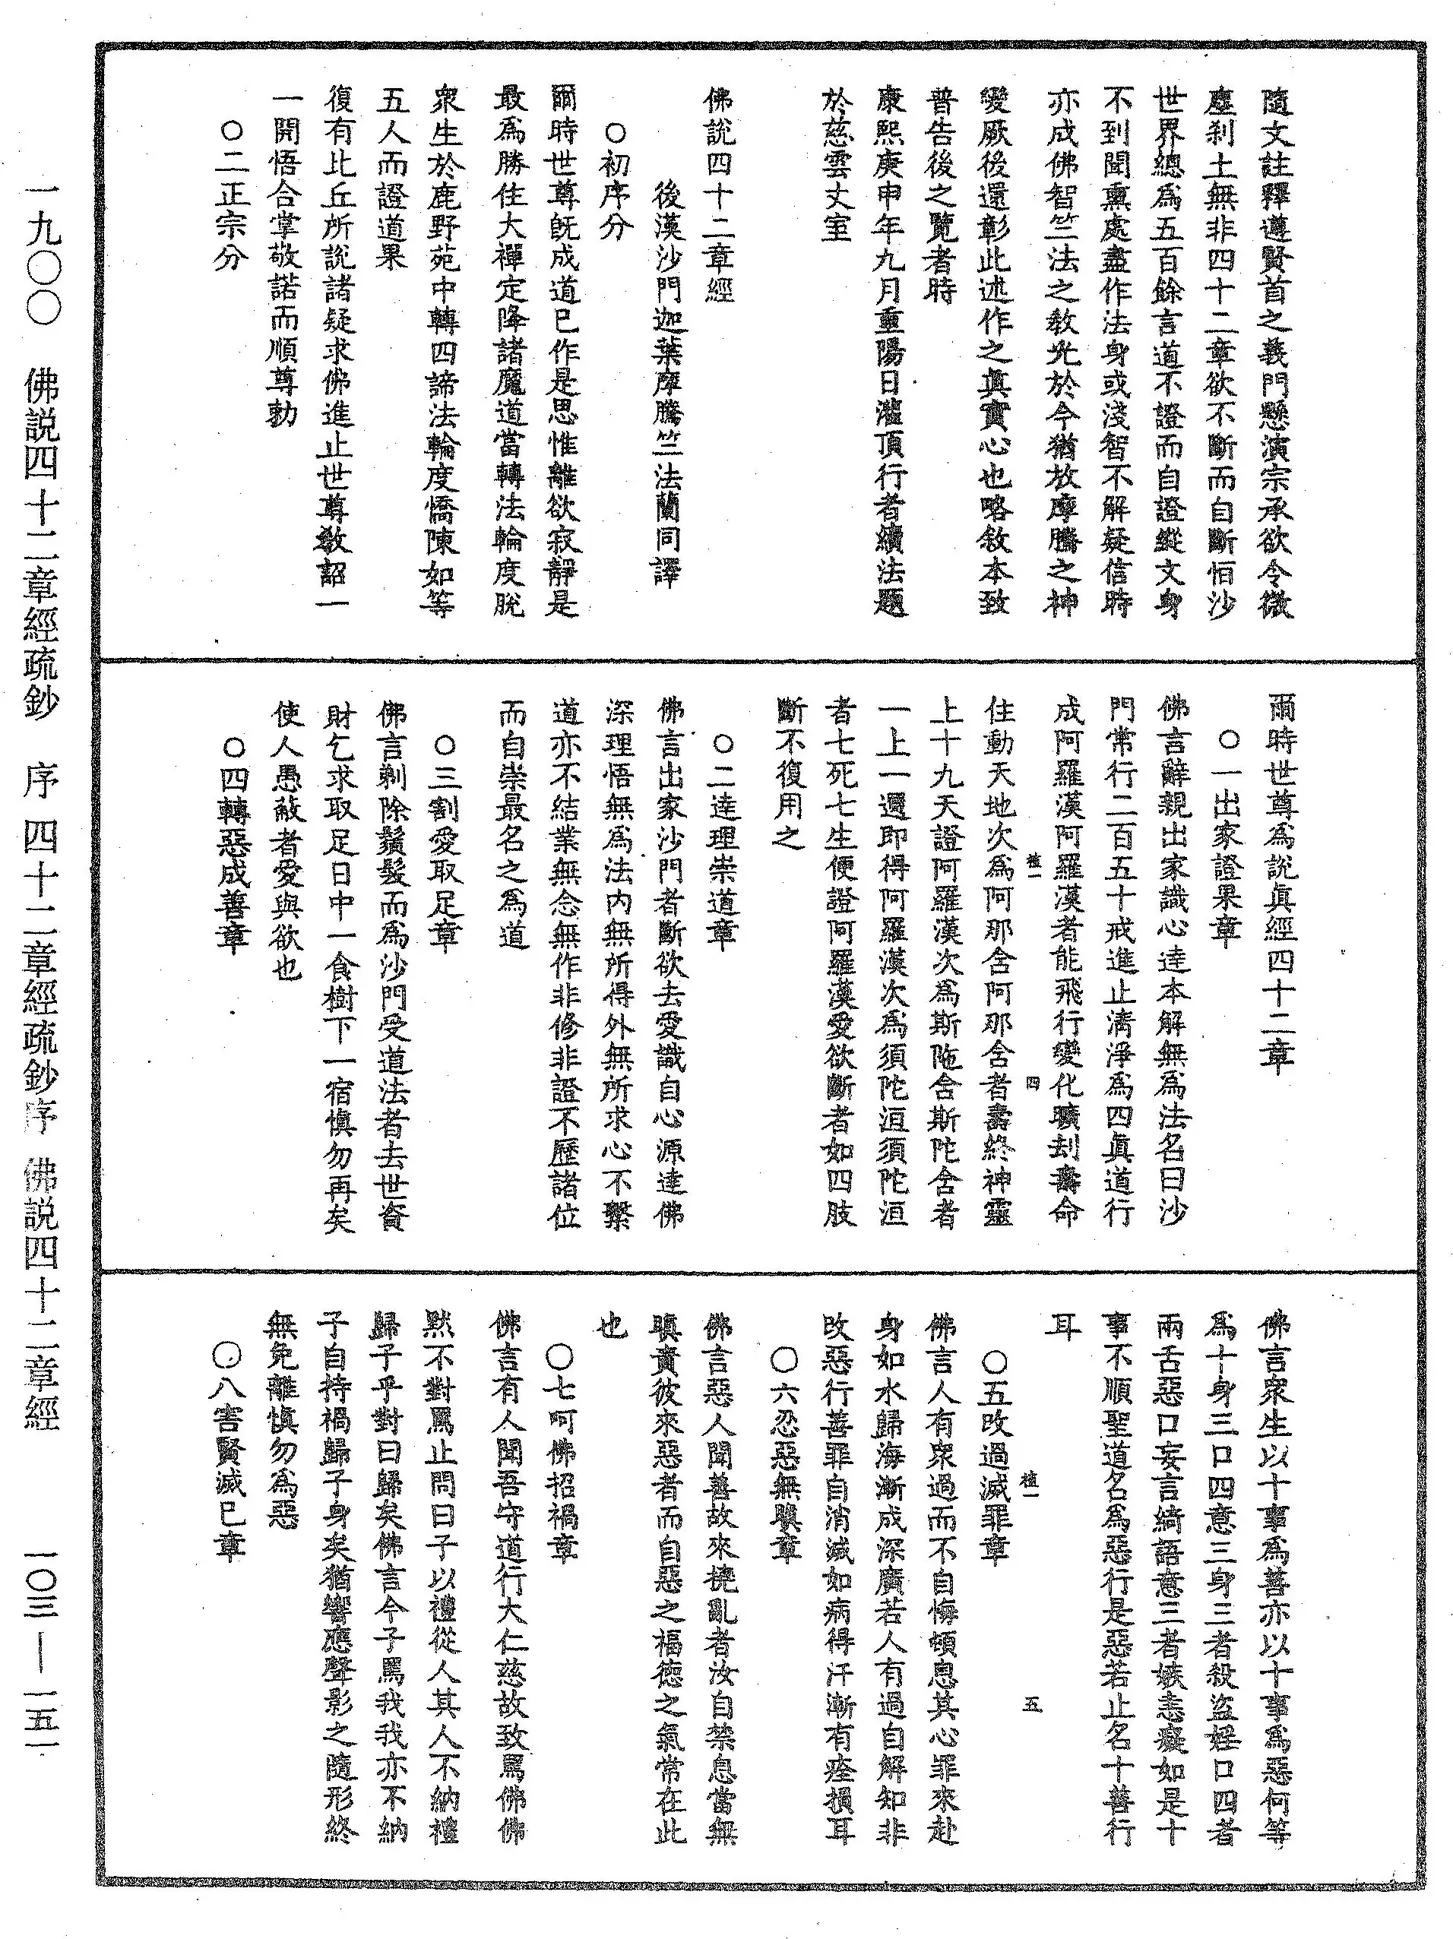 隨文註釋遵賢首之義門懸演宗承欲令微
塵刹土無非四十二章欲不斷而自斷恒沙
世界總爲五百餘言道不證而自證縱文身
不到聞熏處盡作法身或淺智不解疑信時
亦成佛智竺法之教光於今猶故摩騰之神
變厥後還彰此述作之眞實心也略敘本致
普告後之覽者時
康熙庚申年九月重陽日灌頂行者續法題
於慈雲丈室
佛說四十二章經
後漢沙門迦葉摩騰竺法蘭同譯
○初序分
爾時世尊旣成道已作是思惟離欲寂靜是
最爲勝住大禪定降諸魔道當轉法輪度脫
衆生於鹿野苑中轉四諦法輪度憍陳如等
五人而證道果
復有比丘所說諸疑求佛進止世尊教詔一
一開悟合掌敬諾而順尊勅
○二正宗分
爾時世尊爲說眞經四十二章
○一出家證果章
佛言辭親出家識心達本解無爲法名曰沙
門常行二百五十戒進止淸淨爲四眞道行
成阿羅漢阿羅漢者能飛行變化曠刦壽命
植一 四
住動天地次爲阿那舍阿那舍者壽終神靈
上十九天證阿羅漢次爲斯陁舍斯陀舍者
一上一還即得阿羅漢次爲須陀洹須陀洹
者七死七生便證阿羅漢愛欲斷者如四肢
斷不復用之
○二達理崇道章
佛言出家沙門者斷欲去愛識自心源達佛
深理悟無爲法內無所得外無所求心不繫
道亦不結業無念無作非修非證不歷諸位
而自崇最名之爲道
○三割愛取足章
佛言剃除鬚髮而爲沙門受道法者去世資
財乞求取足日中一食樹下一宿愼勿再矣
使人愚蔽者愛與欲也
○四轉惡成善章
佛言衆生以十事爲善亦以十事爲惡何等
爲十身三口四意三身三者殺盜婬口四者
兩舌惡口妄言綺語意三者嫉恚癡如是十
事不順聖道名爲惡行是惡若止名十善行
耳
植一 五
○五改過滅罪章
佛言人有衆過而不自悔頓息其心罪來赴
身如水歸海漸成深廣若人有過自解知非
改惡行善罪自消滅如病得汗漸有痊損耳
○六忍惡無瞋章
佛言惡人聞善故來撓亂者汝自禁息當無
瞋責彼來惡者而自惡之福德之氣常在此
也
○七呵佛招禍章
佛言有人聞吾守道行大仁慈故致罵佛佛
默不對罵止問曰子以禮從人其人不納禮
歸子乎對曰歸矣佛言今子罵我我亦不納
子自持禍歸子身矣猶響應聲影之隨形終
無免離愼勿爲惡
○八害賢滅己章
一九〇〇 佛説四十二章經疏鈔 序 四十二章經疏鈔序 佛説四十二章經 一〇三—一五一